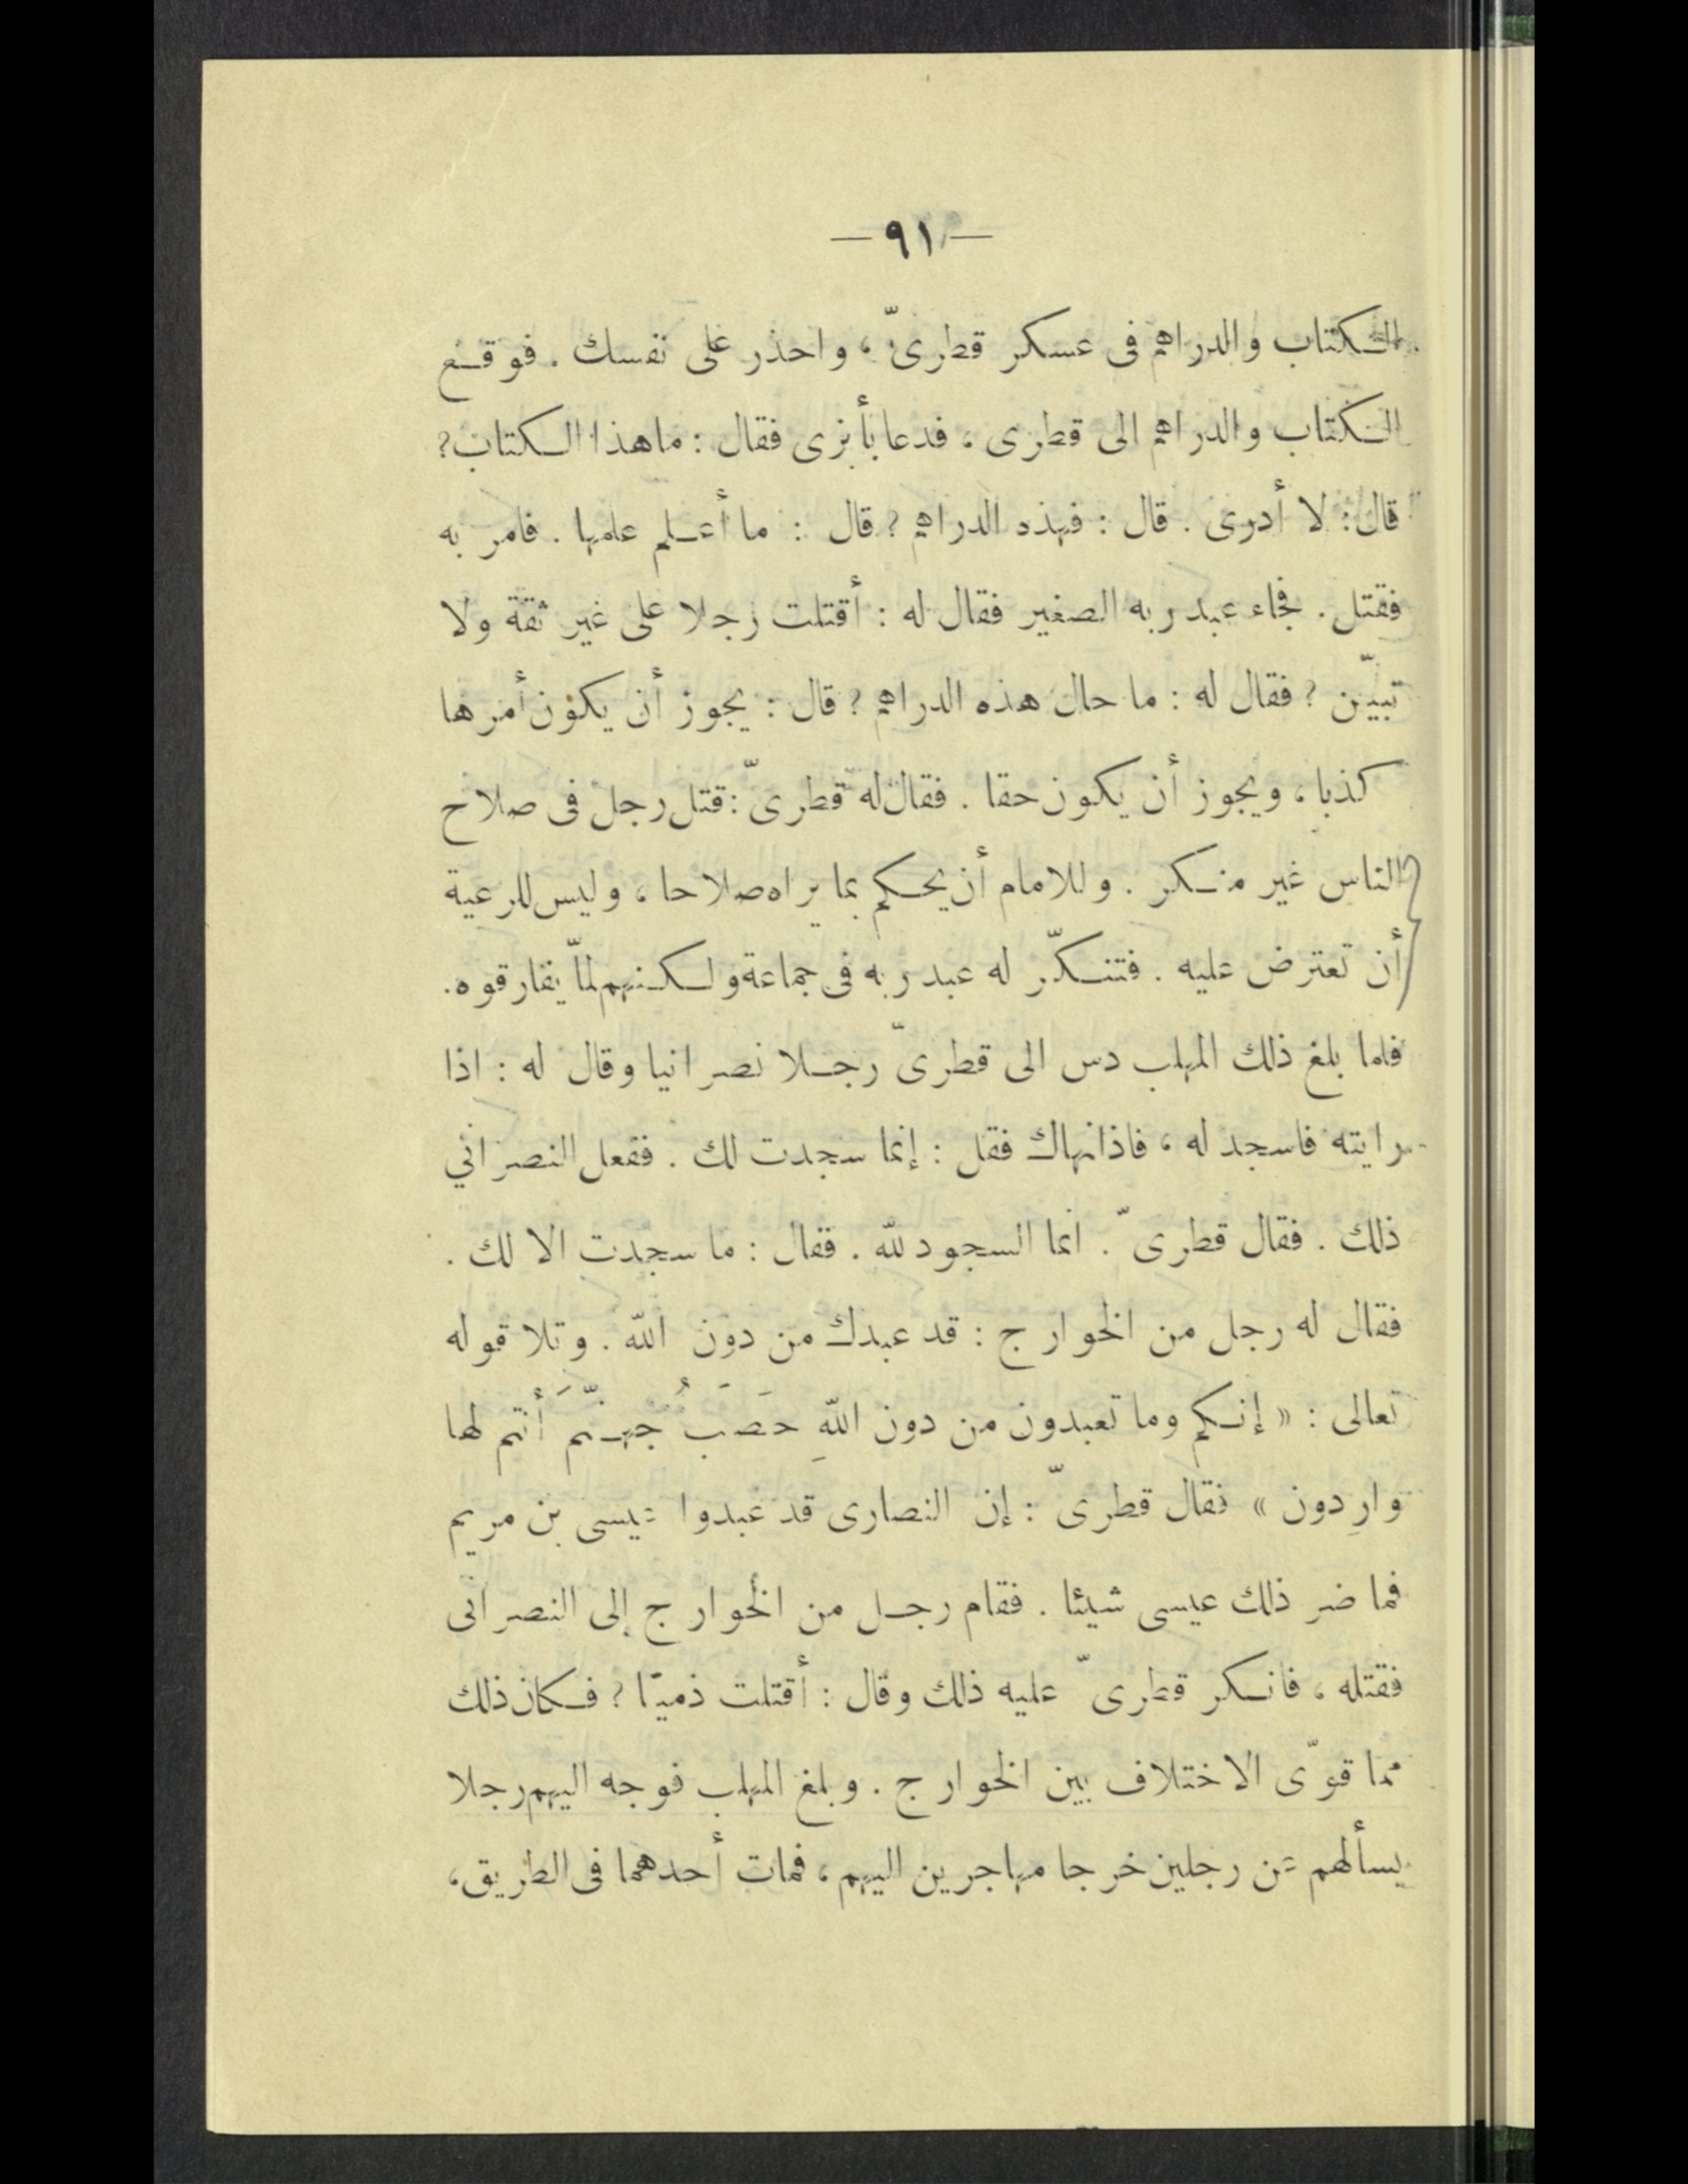 — ٩١ —
الكتاب والدراهم فى عسكر قطرىّ ، واحذر على نفسك . فوقع
الكتاب والدراهم الى قطرى ، فدعا بأبزى فقال : ماهذا الكتاب؟
قال : لا أدرى . قال : فهذه الدراهم ؟ قال : ما أعلم علمها . فامر به
فقتل . فجاء عبد ربه الصغير فقال له : أقتلت رجلا على غير ثقة ولا
تبيّن ؟ فقال له : ما حال هذه الدراهم ؟ قال : يجوز أن يكون أمرها
كذبا ، ويجوز أن يكون حقا . فقال له قطرىّ : قتل رجل فى صلاح
الناس غير منكر . وللامام أن يحكم بما يراه صلاحا ، وليس للرعية
أن تعترض عليه . فتنكّر له عبد ربه فى جماعة ولكنهم لمّا يفارقوه .
فلما بلغ ذلك المهلب دس الى قطرىّ رجلا نصرانيا وقال له : اذا
رايته فاسجد له ، فاذا نهاك فقل : إنما سجدت لك . ففعل النصراني
ذلك . فقال قطرىّ . انما السجود لله . فقال : ما سجدت الا لك .
فقال له رجل من الخوارج : قد عبدك من دون الله . وتلا قوله
تعالى : « إنكم وما تعبدون من دون اللهِ حَصَبُ جهنّمَ أنتم لها
وارِدون » فقال قطرىّ : إن النصارى قد عبدوا عيسى بن مريم
فما ضر ذلك عيسى شيئا . فقام رجل من الخوارج إلى النصرانى
فقتله ، فانكر قطرىّ عليه ذلك وقال : أقتلت ذميّا ؟ فكان ذلك
مما قوّى الاختلاف بين الخوارج . وبلغ المهلب فوجه اليهم رجلا
يسألهم عن رجلين خرجا مهاجرين اليهم ، فمات أحدهما فى الطريق ،